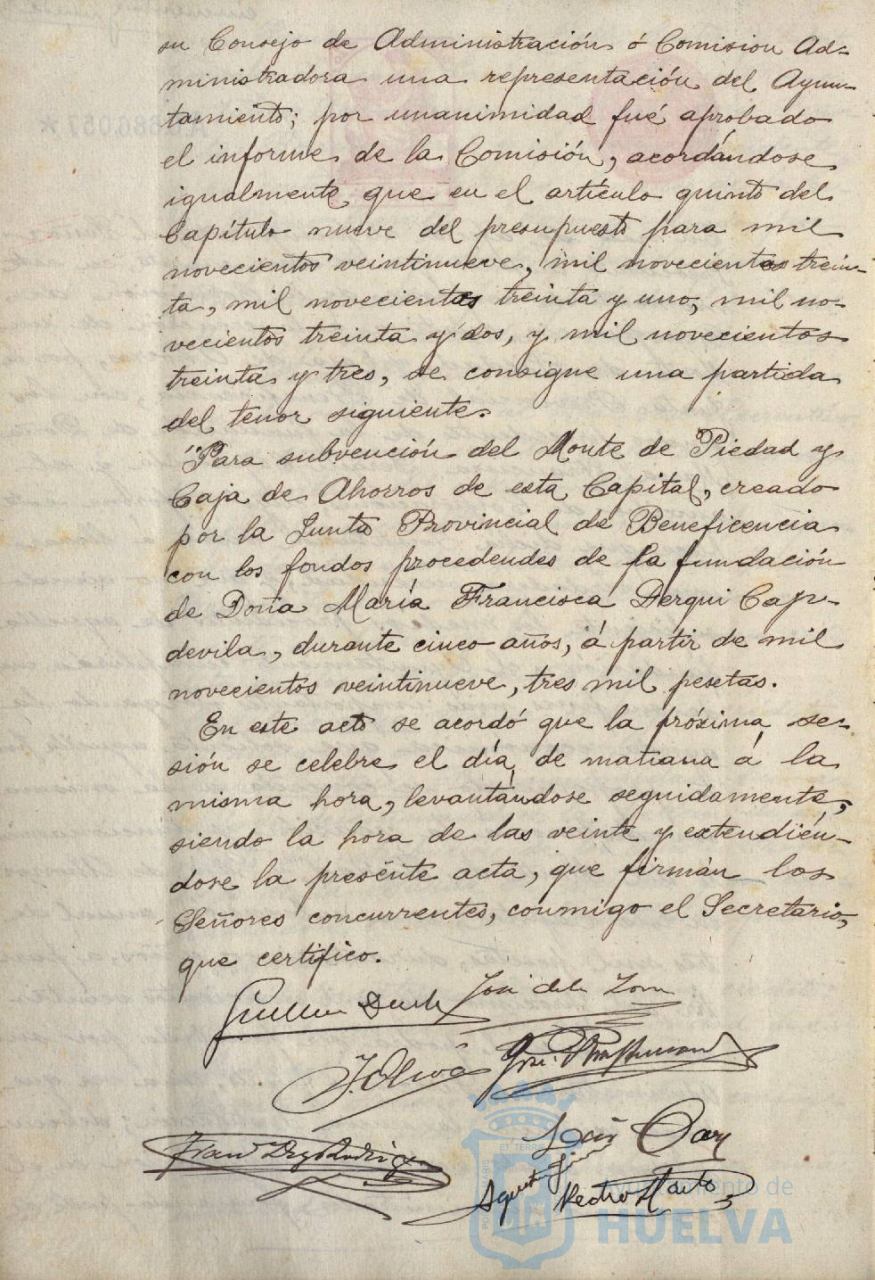 su Consejo de Administración ó Comision Ad-
ministradora una representación del Ayun-
tamiento; por unanimidad fué aprobado
el informe de la Comisión, acordándose
igualmente que en el artículo quinto del
Capítulo nueve del presupuesto para mil
novecientos veintinueve, mil novecientos trein-
ta, mil novecientos treinta y uno, mil no-
vecientos treinta y dos, y mil novecientos
treinta y tres, se consigne una partida
del tenor siguiente.
"Para subvención del Monte de Piedad y
Caja de Ahorros de esta Capital, creado
por la Junta Provincial de Beneficencia
con los fondos procedendes de la fundación
de Doña María Francisca Derqui Cap-
devila, durante cinco años, á partir de mil
novecientos veintinueve, tres mil pesetas.
En este acto se acordó que la próxima se-
sión se celebre el día de mañana á la
misma hora, levantándose seguidamente,
siendo la hora de las veinte y extendién-
dose la presente acta, que firmán los
Señores concurrentes, conmigo el Secretario,
que certifico.
José de la
J. Oliva José
Pedro
Ayuntamiento de
HUELVA